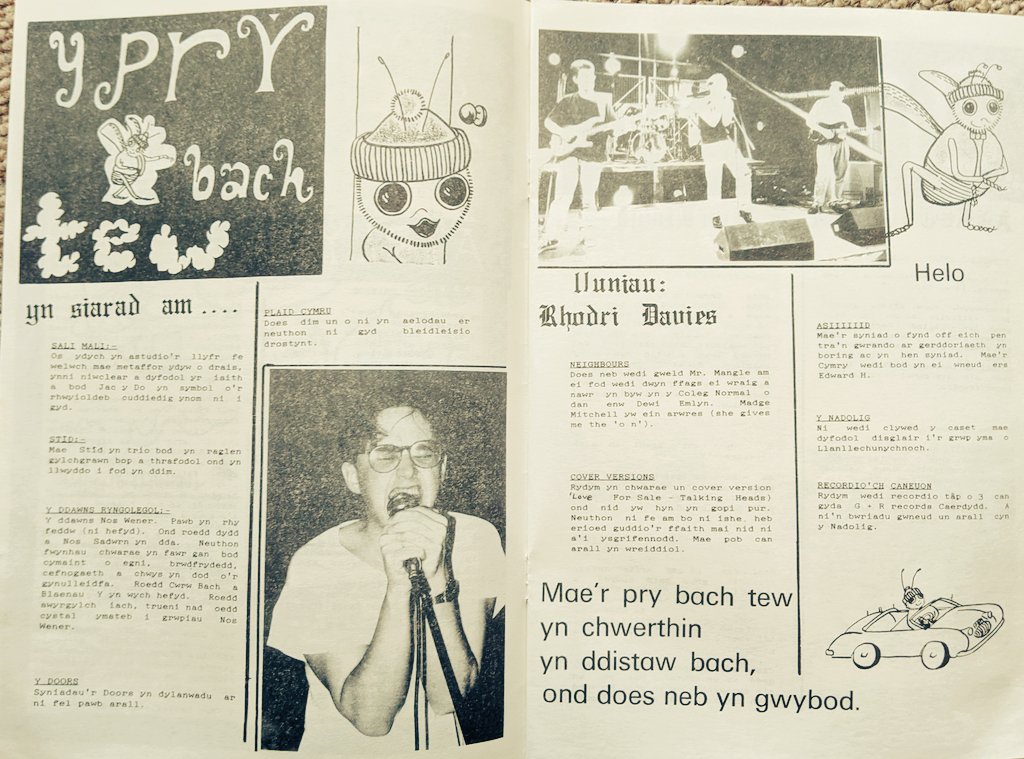 y Pry
bach
tew
yn siarad am ....
SALI MALI:-
Os ydych yn astudio'r llyfr fe
welwch mae metaffor ydyw o drais,
ynni niwclear a dyfodol yr iaith
a bod Jac y Do yn symbol o'r
rhwyioldeb cuddiedig ynom ni i
gyd.
STID:-
Mae Stid yn trio bod yn raglen
gylchgrawn bop a thrafodol ond yn
llwyddo i fod yn ddim.
Y DDAWNS RYNGOLEGOL:-
Y ddawns Nos Wener. Pawb yn rhy
feddw (ni hefyd). Ond roedd dydd
a Nos Sadwrn yn dda. Neuthon
fwynhau chwarae yn fawr gan bod
cymaint o egni, brwdfrydedd,
cefnogaeth a chwys yn dod o'r
gynulleidfa. Roedd Cwrw Bach a
Blaenau Y yn wych hefyd. Roedd
awyrgylch iach, trueni nad oedd
cystal ymateb i grwpiau Nos
Wener.
Y DOORS
Syniadau'r Doors yn dylanwadu ar
ni fel pawb arall.
PLAID CYMRU
Does dim un o ni yn aelodau er
neuthon ni gyd bleidleisio
drostynt.
lluniau:
Rhodri Davies
NEIGHBOURS
Does neb wedi gweld Mr. Mangle am
ei fod wedi dwyn ffags ei wraig a
nawr yn byw yn y Coleg Normal o
dan enw Dewi Emlyn. Madge
Mitchell yw ein arwres (she gives
me the 'o n').
COVER VERSIONS
Rydym yn chwarae un cover version
'Love For Sale - Talking Heads)
ond nid yw hyn yn gopi pur.
Neuthon ni fe am bo ni ishe, heb
erioed guddio'r ffaith mai nid ni
a'i ysgrifennodd. Mae pob can
arall yn wreiddiol.
Mae'r pry bach tew
yn chwerthin
yn ddistaw bach,
ond does neb yn gwybod.
Helo
ASIIIIIID
Mae'r syniad o fynd off eich pen
tra'n gwrando ar gerddoriaeth yn
boring ac yn hen syniad. Mae'r
Cymry wedi bod yn ei wneud ers
Edward H.
Y NADOLIG
Ni wedi clywed y caset mae
dyfodol disglair i'r grwp yma o
Llanllechunychnoch.
RECORDIO'CH CANEUON
Rydym wedi recordio tâp o 3 can
gyda G + R records Caerdydd. A
ni'n bwriadu gwneud un arall cyn
y Nadolig.